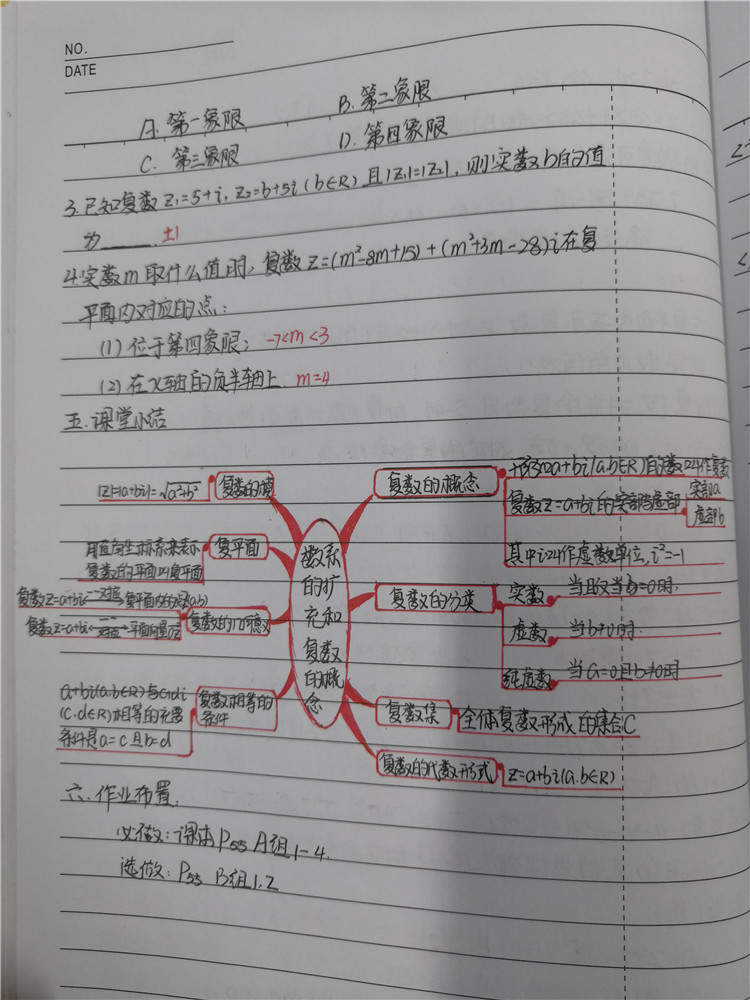 NO.
DATE
A. 第一象限 B. 第二象限
C. 第三象限 D. 第四象限
3.已知复数 z₁=5+i, z₂=b+5i (b∈R) 且|z₁|=|z₂|, 则实数b的值
为______. ±1
4.实数m取什么值时, 复数 z=(m²-8m+15)+(m²+3m-28)i在复
平面内对应的点:
(1) 位于第四象限; -7<m<3
(2) 在x轴的负半轴上. m=4
五.课堂小结
数系的扩充和复数的概念
复数的模
|z|=|a+bi|=√a²+b²
复平面
用直角坐标系来表示
复数的平面叫复平面
复数的几何意义
复数z=a+bi ⟷一一对应 复平面内的点(a,b)
复数z=a+bi ⟷一一对应 平面向量OZ
复数相等的
条件
a+bi(a,b∈R)与c+di
(c,d∈R)相等的充要
条件是a=c且b=d
复数的概念
形如a+bi(a,b∈R)的数叫作复数
复数z=a+bi的实部与虚部
实部a
虚部b
其中i叫作虚数单位, i²=-1
复数的分类
实数 当且仅当b=0时.
虚数 当b≠0时.
纯虚数 当a=0且b≠0时
复数集
全体复数形成的集合C
复数的代数形式
z=a+bi(a,b∈R)
六.作业布置.
必做: 课本P₅₅ A组1-4.
选做: P₅₅ B组1,2